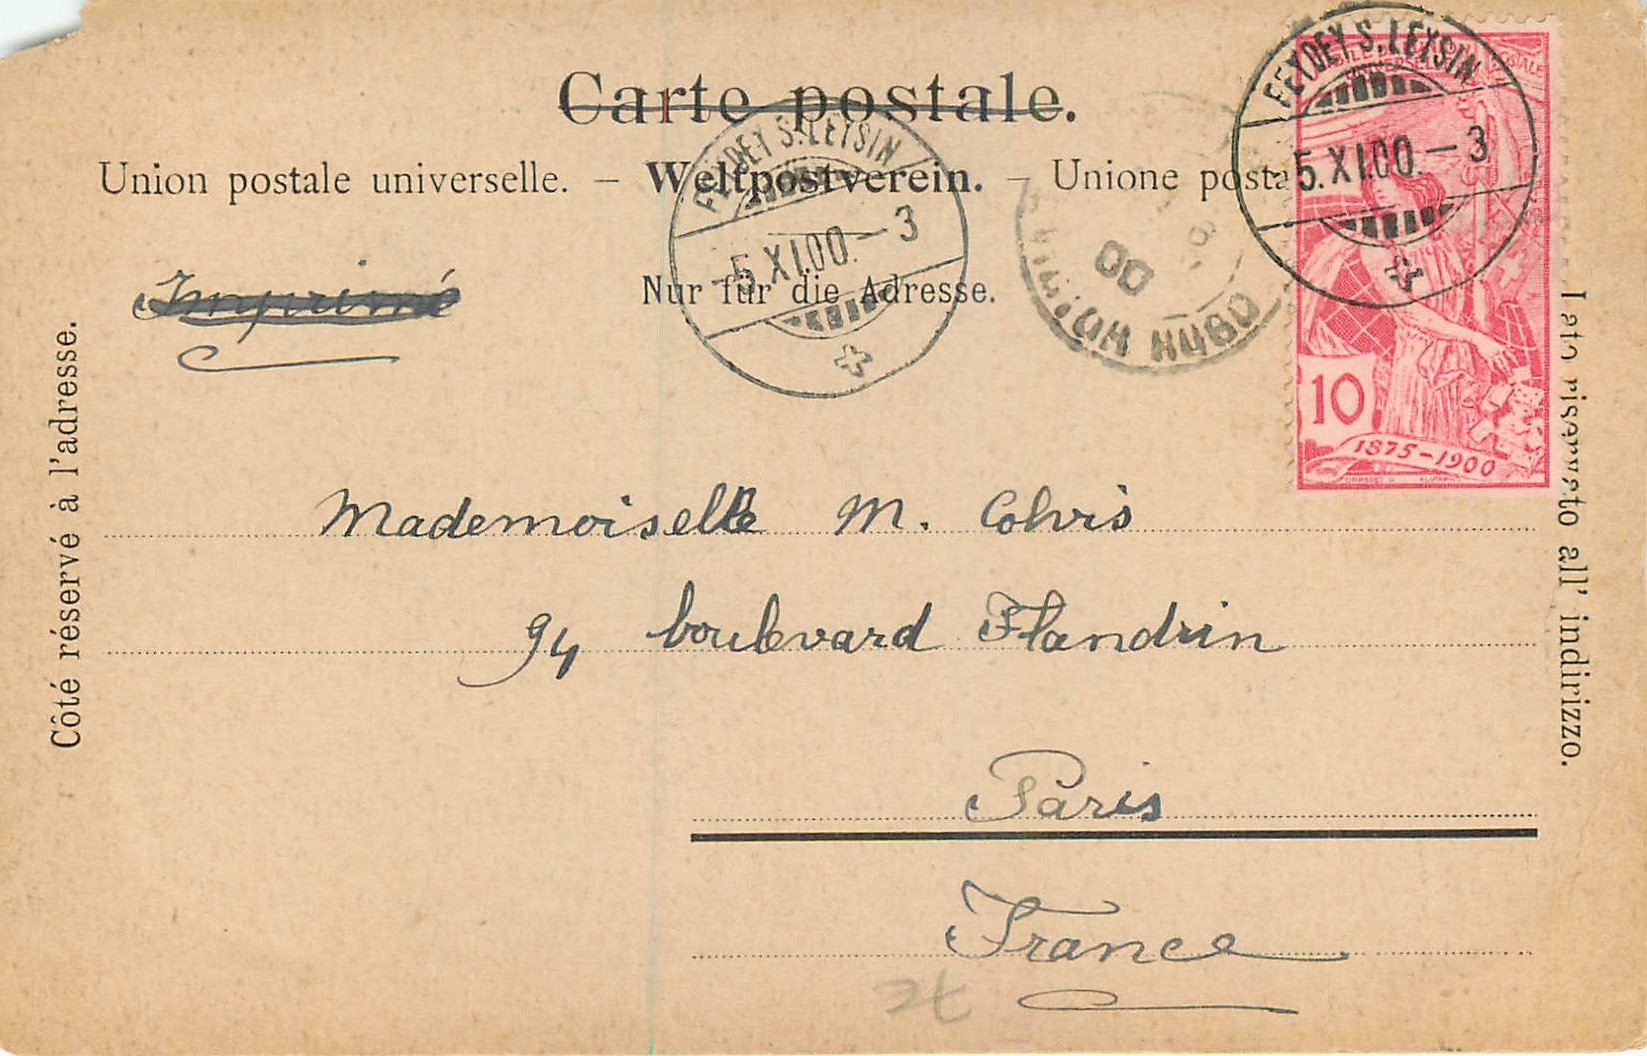 Carte postale.
Union postale universelle. – Weltpostverein. – Unione posta
Nur für die Adresse.
Côté réservé à l'adresse.
Lato riservato all' indirizzo.
Imprimé
FEYDEY S. LEYSIN
-5.XI.00.-3
FEYDEY S. LEYSIN
5.XI.00.-3
00
HUGO
10
1875-1900
Mademoiselle M. Colvis
94 boulevard Flandrin
Paris
France